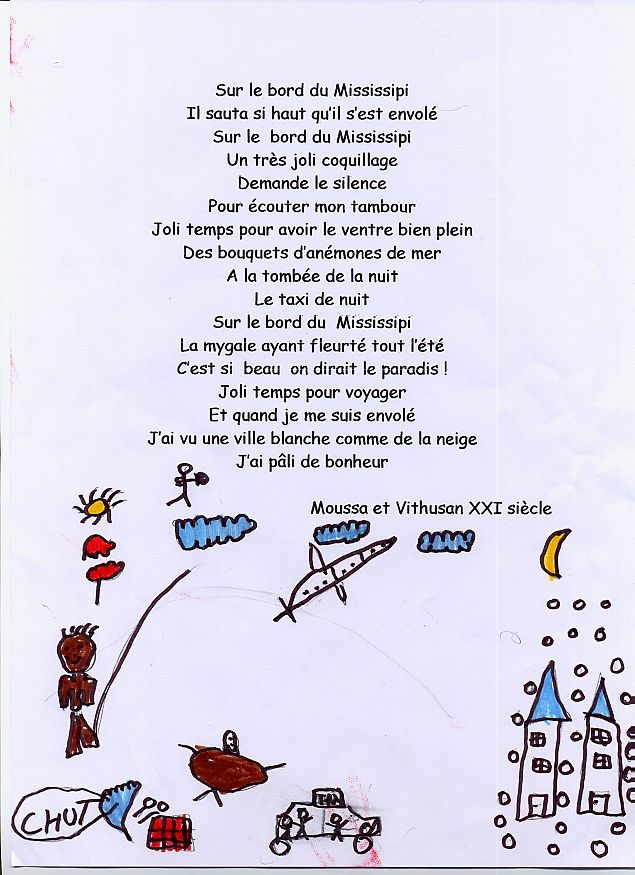 Sur le bord du Mississipi
Il sauta si haut qu'il s'est envolé
Sur le bord du Mississipi
Un très joli coquillage
Demande le silence
Pour écouter mon tambour
Joli temps pour avoir le ventre bien plein
Des bouquets d'anémones de mer
A la tombée de la nuit
Le taxi de nuit
Sur le bord du Mississipi
La mygale ayant fleurté tout l'été
C'est si beau on dirait le paradis !
Joli temps pour voyager
Et quand je me suis envolé
J'ai vu une ville blanche comme de la neige
J'ai pâli de bonheur
Moussa et Vithusan XXI siècle
CHUT